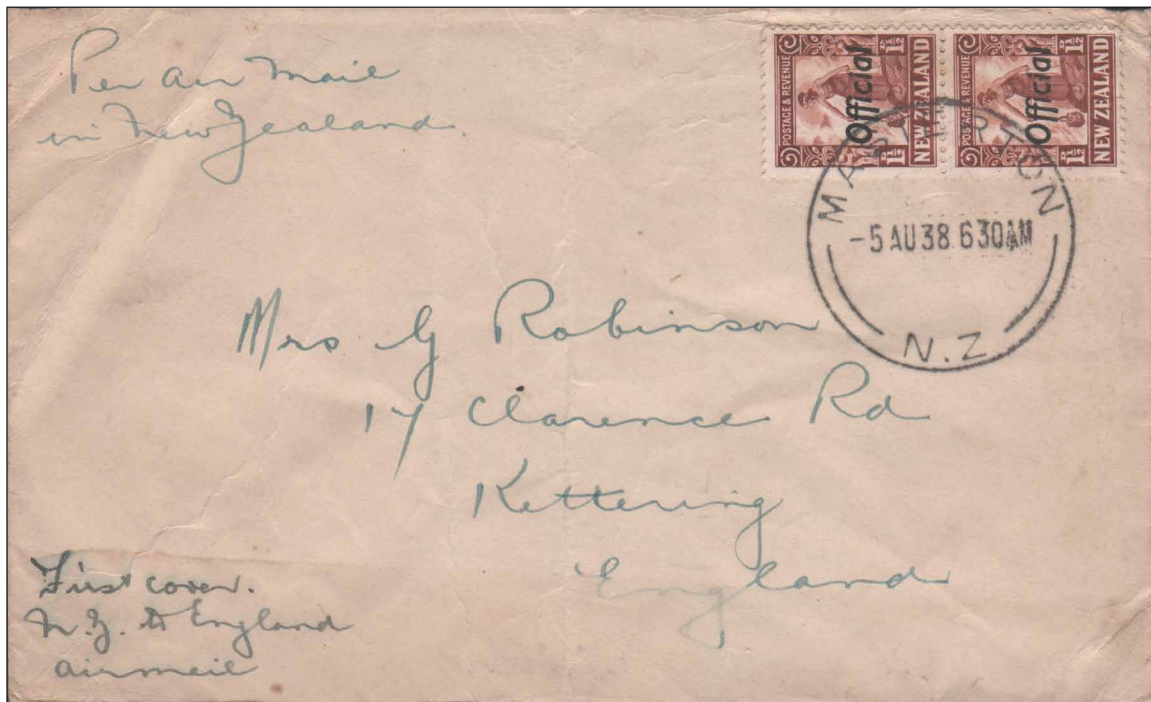 Per air mail
in New Zealand.
POSTAGE & REVENUE
1½D
1½
Official
NEW ZEALAND
POSTAGE & REVENUE
1½D
1½
Official
NEW ZEALAND
MASTERTON
-5 AU 38. 630AM
N.Z
Mrs G Robinson
17 Clarence Rd
Kettering
England
First cover.
N.Z. to England
airmail